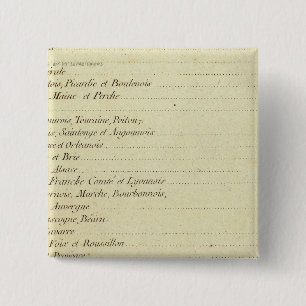 erale
tois, Picardie et Boulenois
Maine et Perche
Saintonge et Angoumois
et Orleanois
et Brie
Alsace
Franche Comté et Lyonnois
rnois, Marche, Bourbonnois,
Auvergne
scogne, Béarn
avarre
Foix et Roussillon
Provence